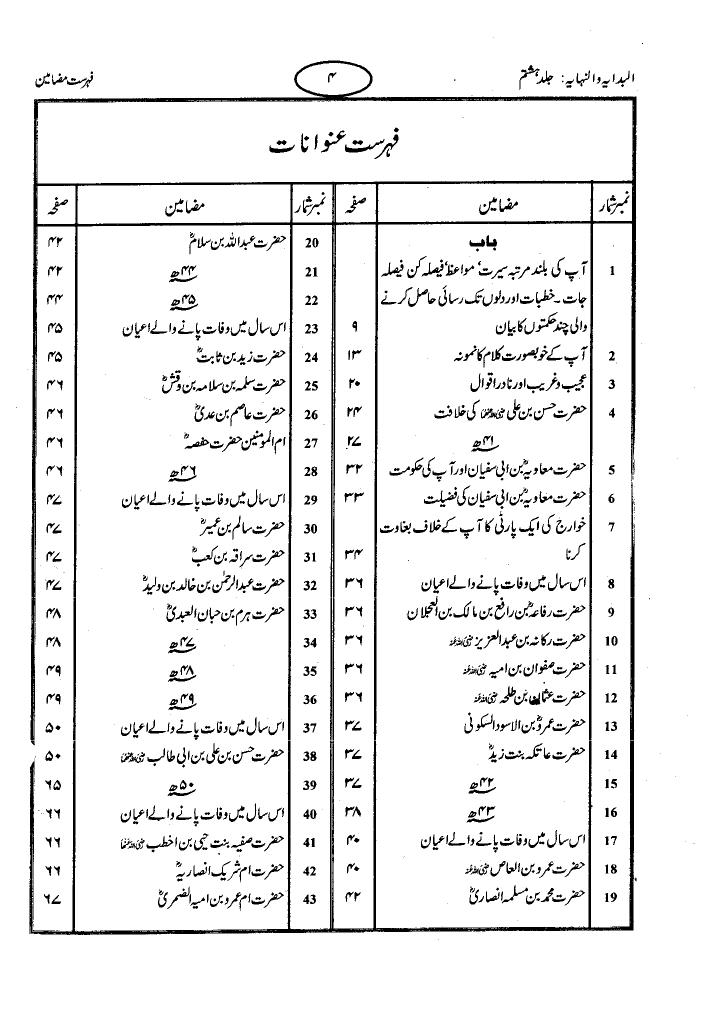 البدایہ والنہایہ: جلد ہشتم ۴ فہرست مضامین
فہرست عنوانات
نمبر شمار مضامین صفحہ نمبر شمار مضامین صفحہ
باب
1 آپ کی بلند مرتبہ سیرت‘ مواعظ‘ فیصلہ کن فیصلہ
جات۔ خطبات اور دلوں تک رسائی حاصل کرنے
والی چند حکمتوں کا بیان ۹
2 آپ کے خوبصورت کلام کا نمونہ ۱۳
3 عجیب و غریب اور نادر اقوال ۲۰
4 حضرت حسن بن علی رضی اللہ عنہما کی خلافت ۲۴
۴۱ھ ۲۷
5 حضرت معاویہؓ بن ابی سفیان اور آپ کی حکومت ۳۲
6 حضرت معاویہؓ بن ابی سفیان کی فضیلت ۳۳
7 خوارج کی ایک پارٹی کا آپ کے خلاف بغاوت
کرنا ۳۴
8 اس سال میں وفات پانے والے اعیان ۳۶
9 حضرت رفاعہؓ بن رافع بن مالک بن العجلان ۳۶
10 حضرت رکانہ بن عبدالعزیز رضی اللہ عنہ ۳۶
11 حضرت صفوان بن امیہ رضی اللہ عنہ ۳۶
12 حضرت عثمان بن طلحہ رضی اللہ عنہ ۳۶
13 حضرت عمروؓ بن الاسود السکونی ۳۷
14 حضرت عاتکہ بنت زیدؓ ۳۷
15 ۴۲ھ ۳۷
16 ۴۳ھ ۳۸
17 اس سال میں وفات پانے والے اعیان ۴۰
18 حضرت عمرو بن العاص رضی اللہ عنہ ۴۰
19 حضرت محمد بن مسلمہ انصاریؓ ۴۲
20 حضرت عبداللہ بن سلامؓ ۴۲
21 ۴۴ھ ۴۲
22 ۴۵ھ ۴۴
23 اس سال میں وفات پانے والے اعیان ۴۵
24 حضرت زید بن ثابتؓ ۴۵
25 حضرت سلمہ بن سلامہ بن وقشؓ ۴۶
26 حضرت عاصم بن عدیؓ ۴۶
27 ام المومنین حضرت حفصہؓ ۴۶
28 ۴۶ھ ۴۶
29 اس سال میں وفات پانے والے اعیان ۴۷
30 حضرت سالم بن عمیرؓ ۴۷
31 حضرت سراقہ بن کعبؓ ۴۷
32 حضرت عبدالرحمٰن بن خالد بن ولیدؓ ۴۷
33 حضرت ہرم بن حبان العبدیؓ ۴۸
34 ۴۷ھ ۴۸
35 ۴۸ھ ۴۹
36 ۴۹ھ ۴۹
37 اس سال میں وفات پانے والے اعیان ۵۰
38 حضرت حسن بن علی بن ابی طالب رضی اللہ عنہما ۵۰
39 ۵۰ھ ۶۵
40 اس سال میں وفات پانے والے اعیان ۶۶
41 حضرت صفیہ بنت حیی بن اخطب رضی اللہ عنہا ۶۶
42 حضرت ام شریک انصاریہؓ ۶۶
43 حضرت ام عمرو بن امیہ الضمریؓ ۶۷